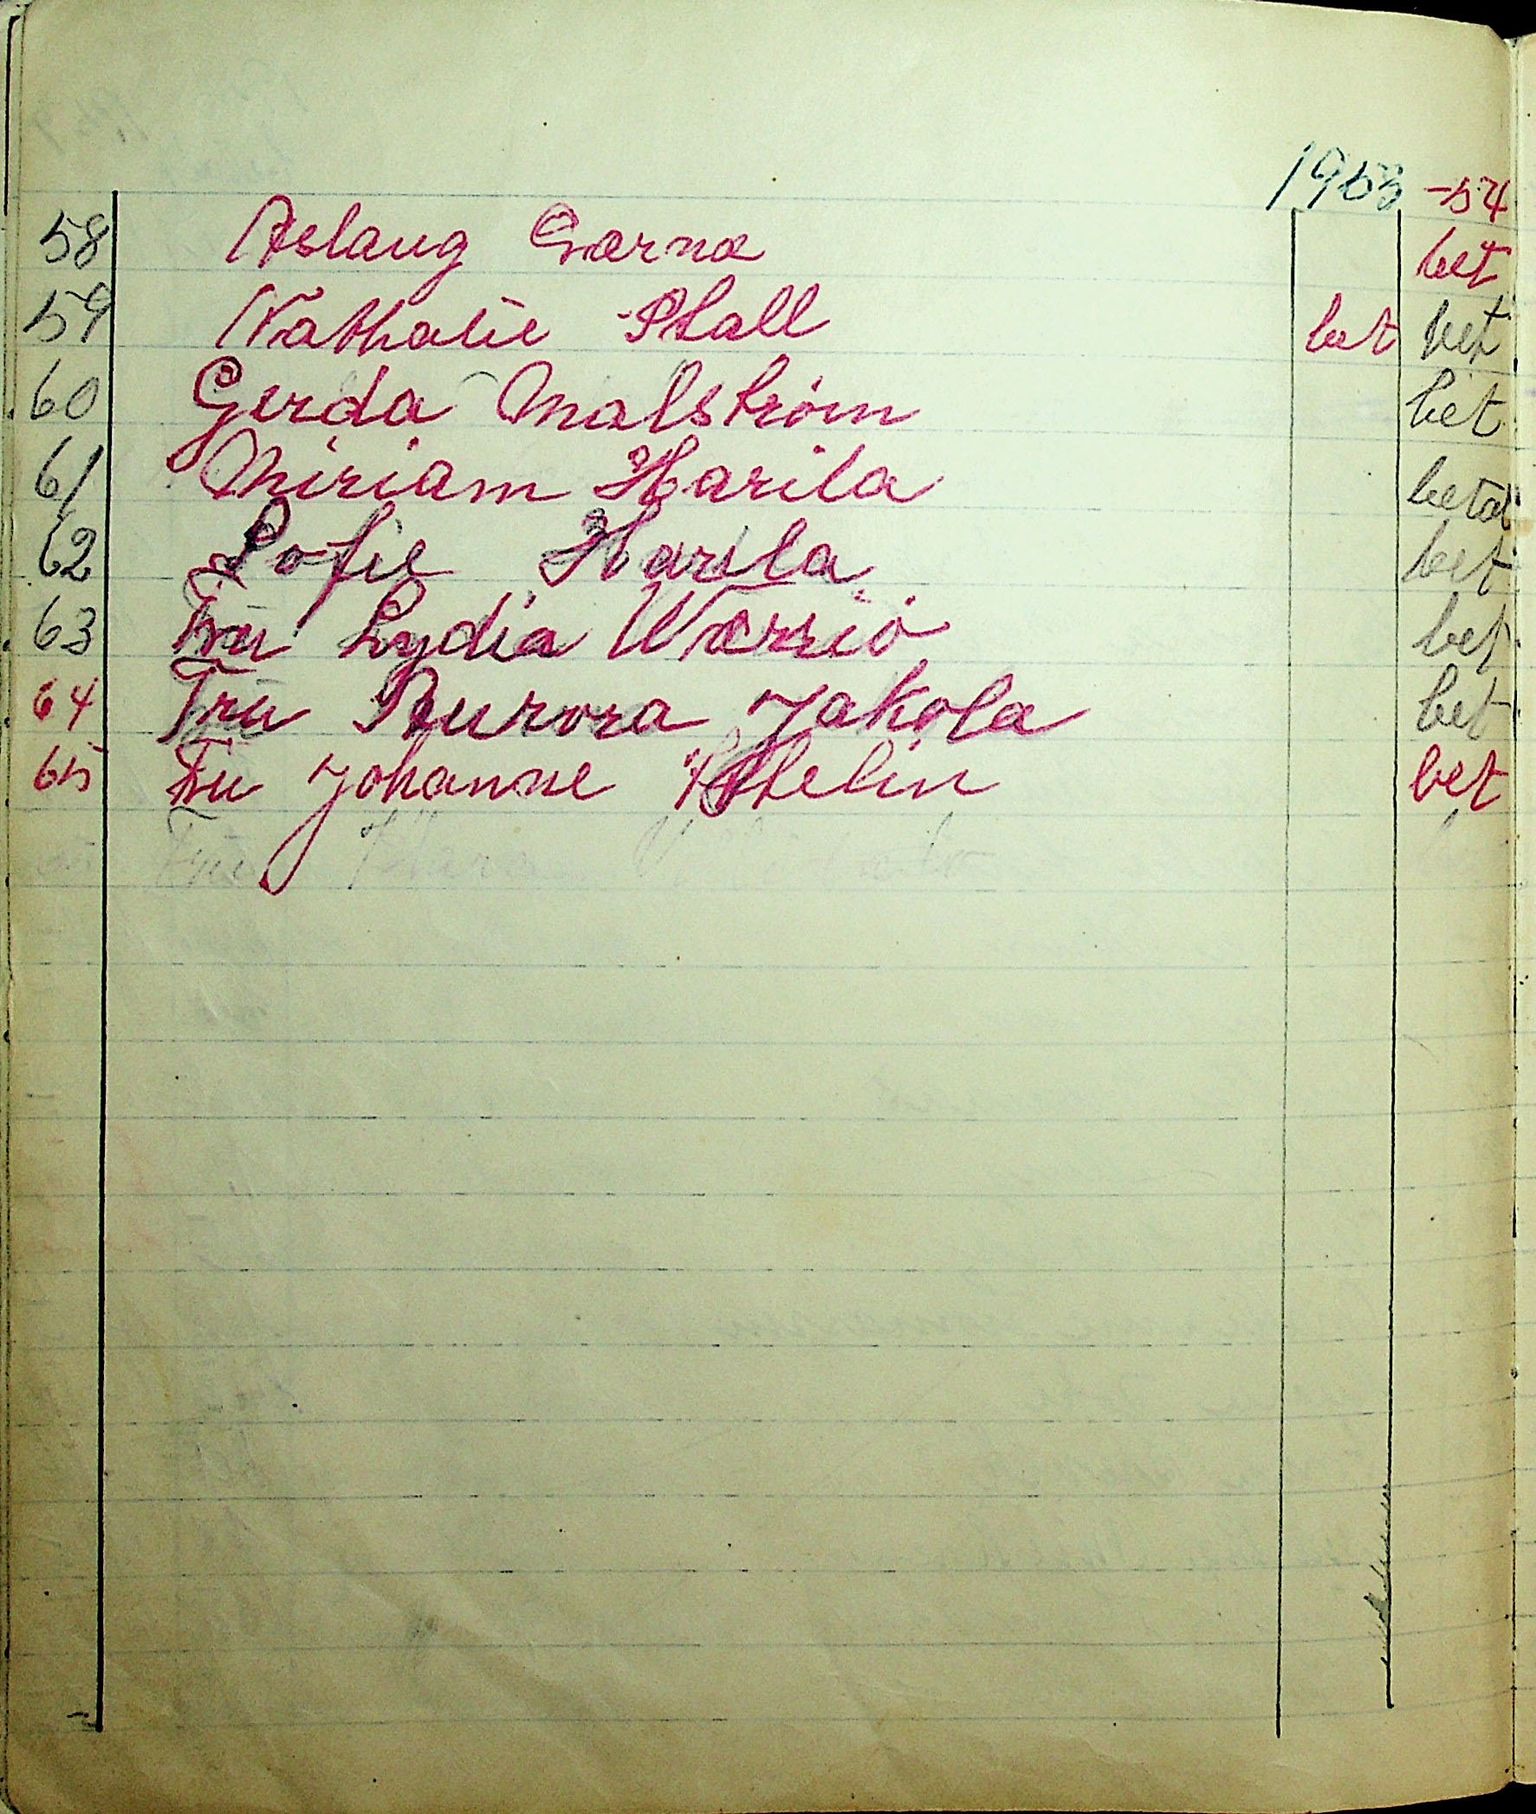 1953 -54
58 Aslaug Garna bet
59 Nathalie Stall bet bet
60 Gerda Malström bet
61 Miriam Harila betat
62 Sofie Harila bet
63 Fru Lydia Wærriö bet
64 Fru Aurora Jakola bet
65 Fru Johanne bet
Fru